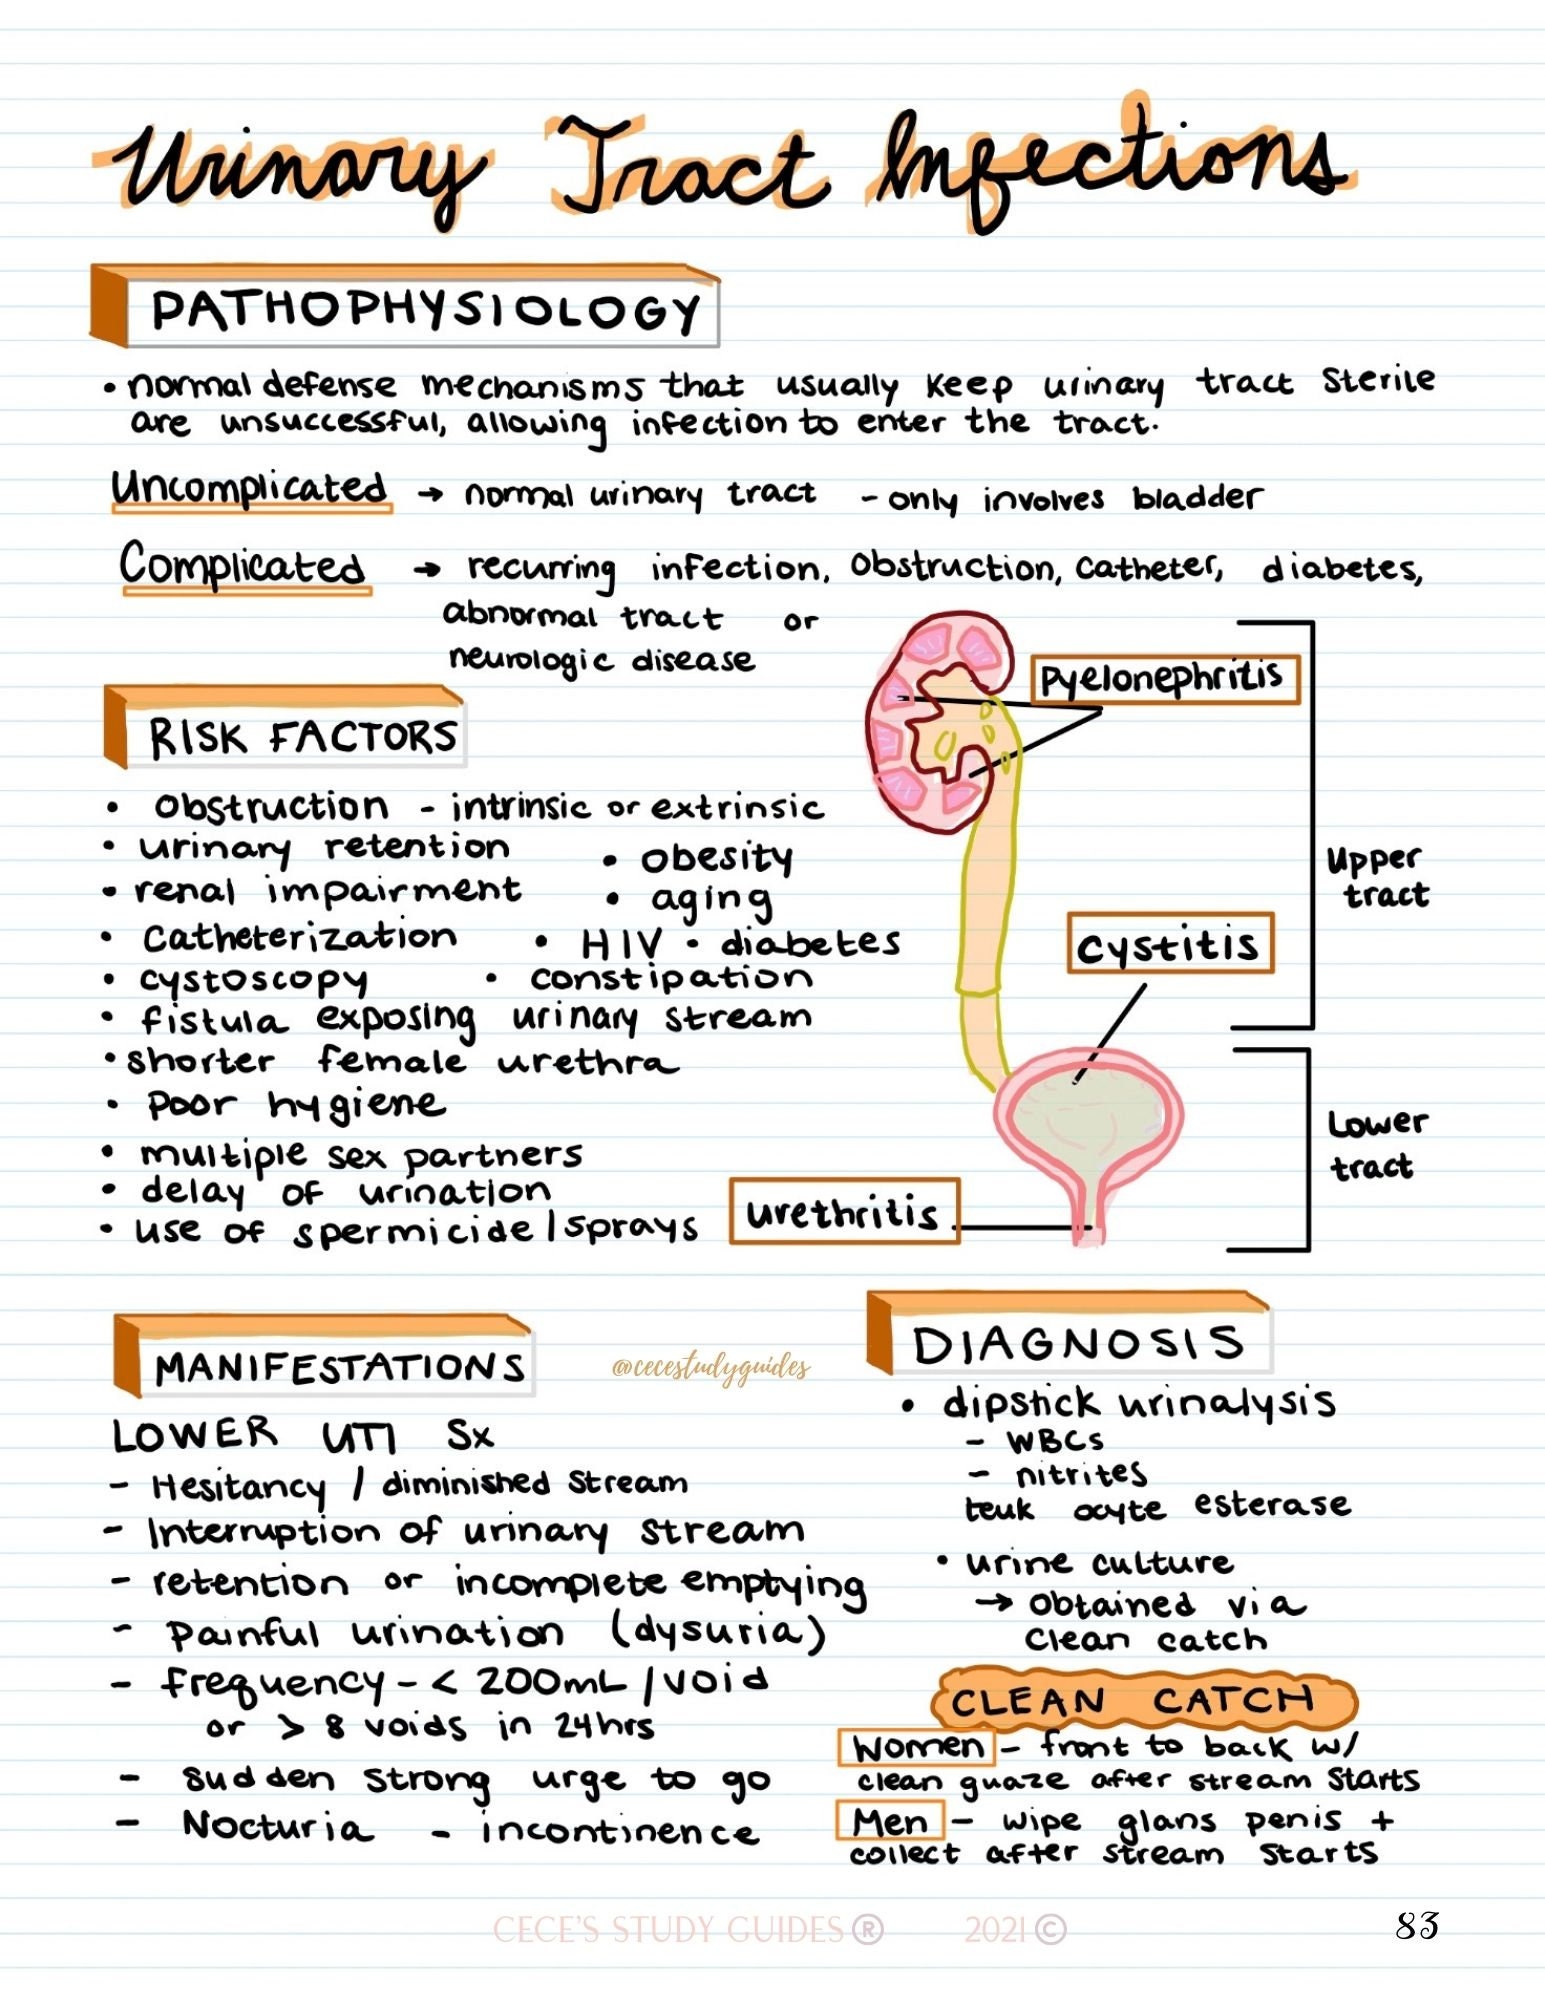 Urinary Tract Infections
PATHOPHYSIOLOGY
• normal defense mechanisms that usually keep urinary tract sterile
are unsuccessful, allowing infection to enter the tract.
Uncomplicated → normal urinary tract - only involves bladder
Complicated → recurring infection, obstruction, catheter, diabetes,
abnormal tract or
neurologic disease
Pyelonephritis
Upper
tract
Cystitis
Lower
tract
urethritis
RISK FACTORS
• Obstruction - intrinsic or extrinsic
• urinary retention
• obesity
• renal impairment
• aging
• Catheterization • HIV • diabetes
• cystoscopy • constipation
• fistula exposing urinary stream
• shorter female urethra
• Poor hygiene
• multiple sex partners
• delay of urination
• use of spermicide/sprays
MANIFESTATIONS
@cecestudyguides
LOWER UTI Sx
- Hesitancy / diminished stream
- Interruption of urinary stream
- retention or incomplete emptying
- Painful urination (dysuria)
- frequency - < 200mL/void
or > 8 voids in 24hrs
- Sudden strong urge to go
- Nocturia - incontinence
DIAGNOSIS
• dipstick urinalysis
- WBCs
- nitrites
leuk ocyte esterase
• urine culture
→ Obtained via
Clean catch
CLEAN CATCH
Women - front to back w/
clean guaze after stream starts
Men - wipe glans penis +
collect after stream starts
CECE'S STUDY GUIDES ® 2021 ©
83